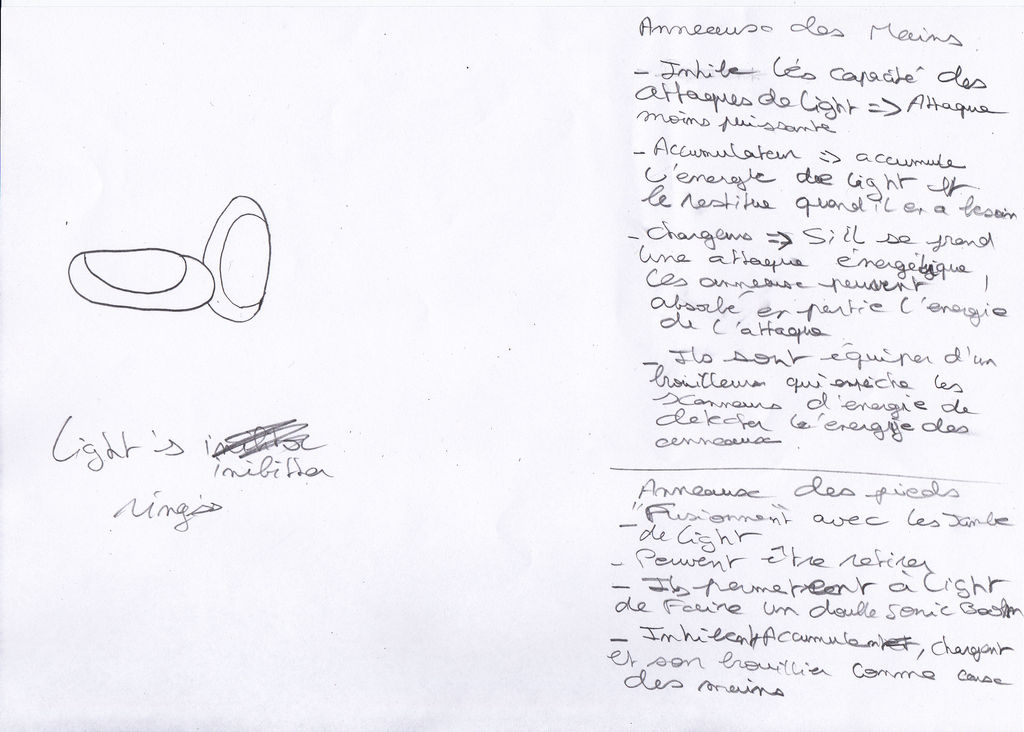 Light's
inibitter
rings
Anneaux des Mains
- Inhibe les capacité des
attaques de Light => Attaque
moins puissante
- Accumulateur => accumule
l'énergie de Light et
le restitue quand il en a besoin
- Chargeurs => S'il se prend
Une attaque énergétique,
Les anneaux peuvent
absorbé en partie l'énergie
de l'attaque
- Ils sont équiper d'un
brouilleur qui empêche les
scanneurs d'énergie de
detecter l'énergie des
anneaux
Anneaux des pieds
- "Fusionnent" avec les Jambe
de Light
- Peuvent être retirer
- Ils permettent à Light
de Faire un double sonic Boom
- Inhibent, Accumulent, chargent
et son brouiller comme ceux
des mains